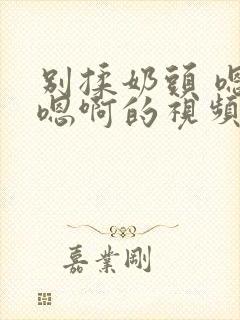 别揉奶頭 嗯
嗯啊的視頻
嘉業剛